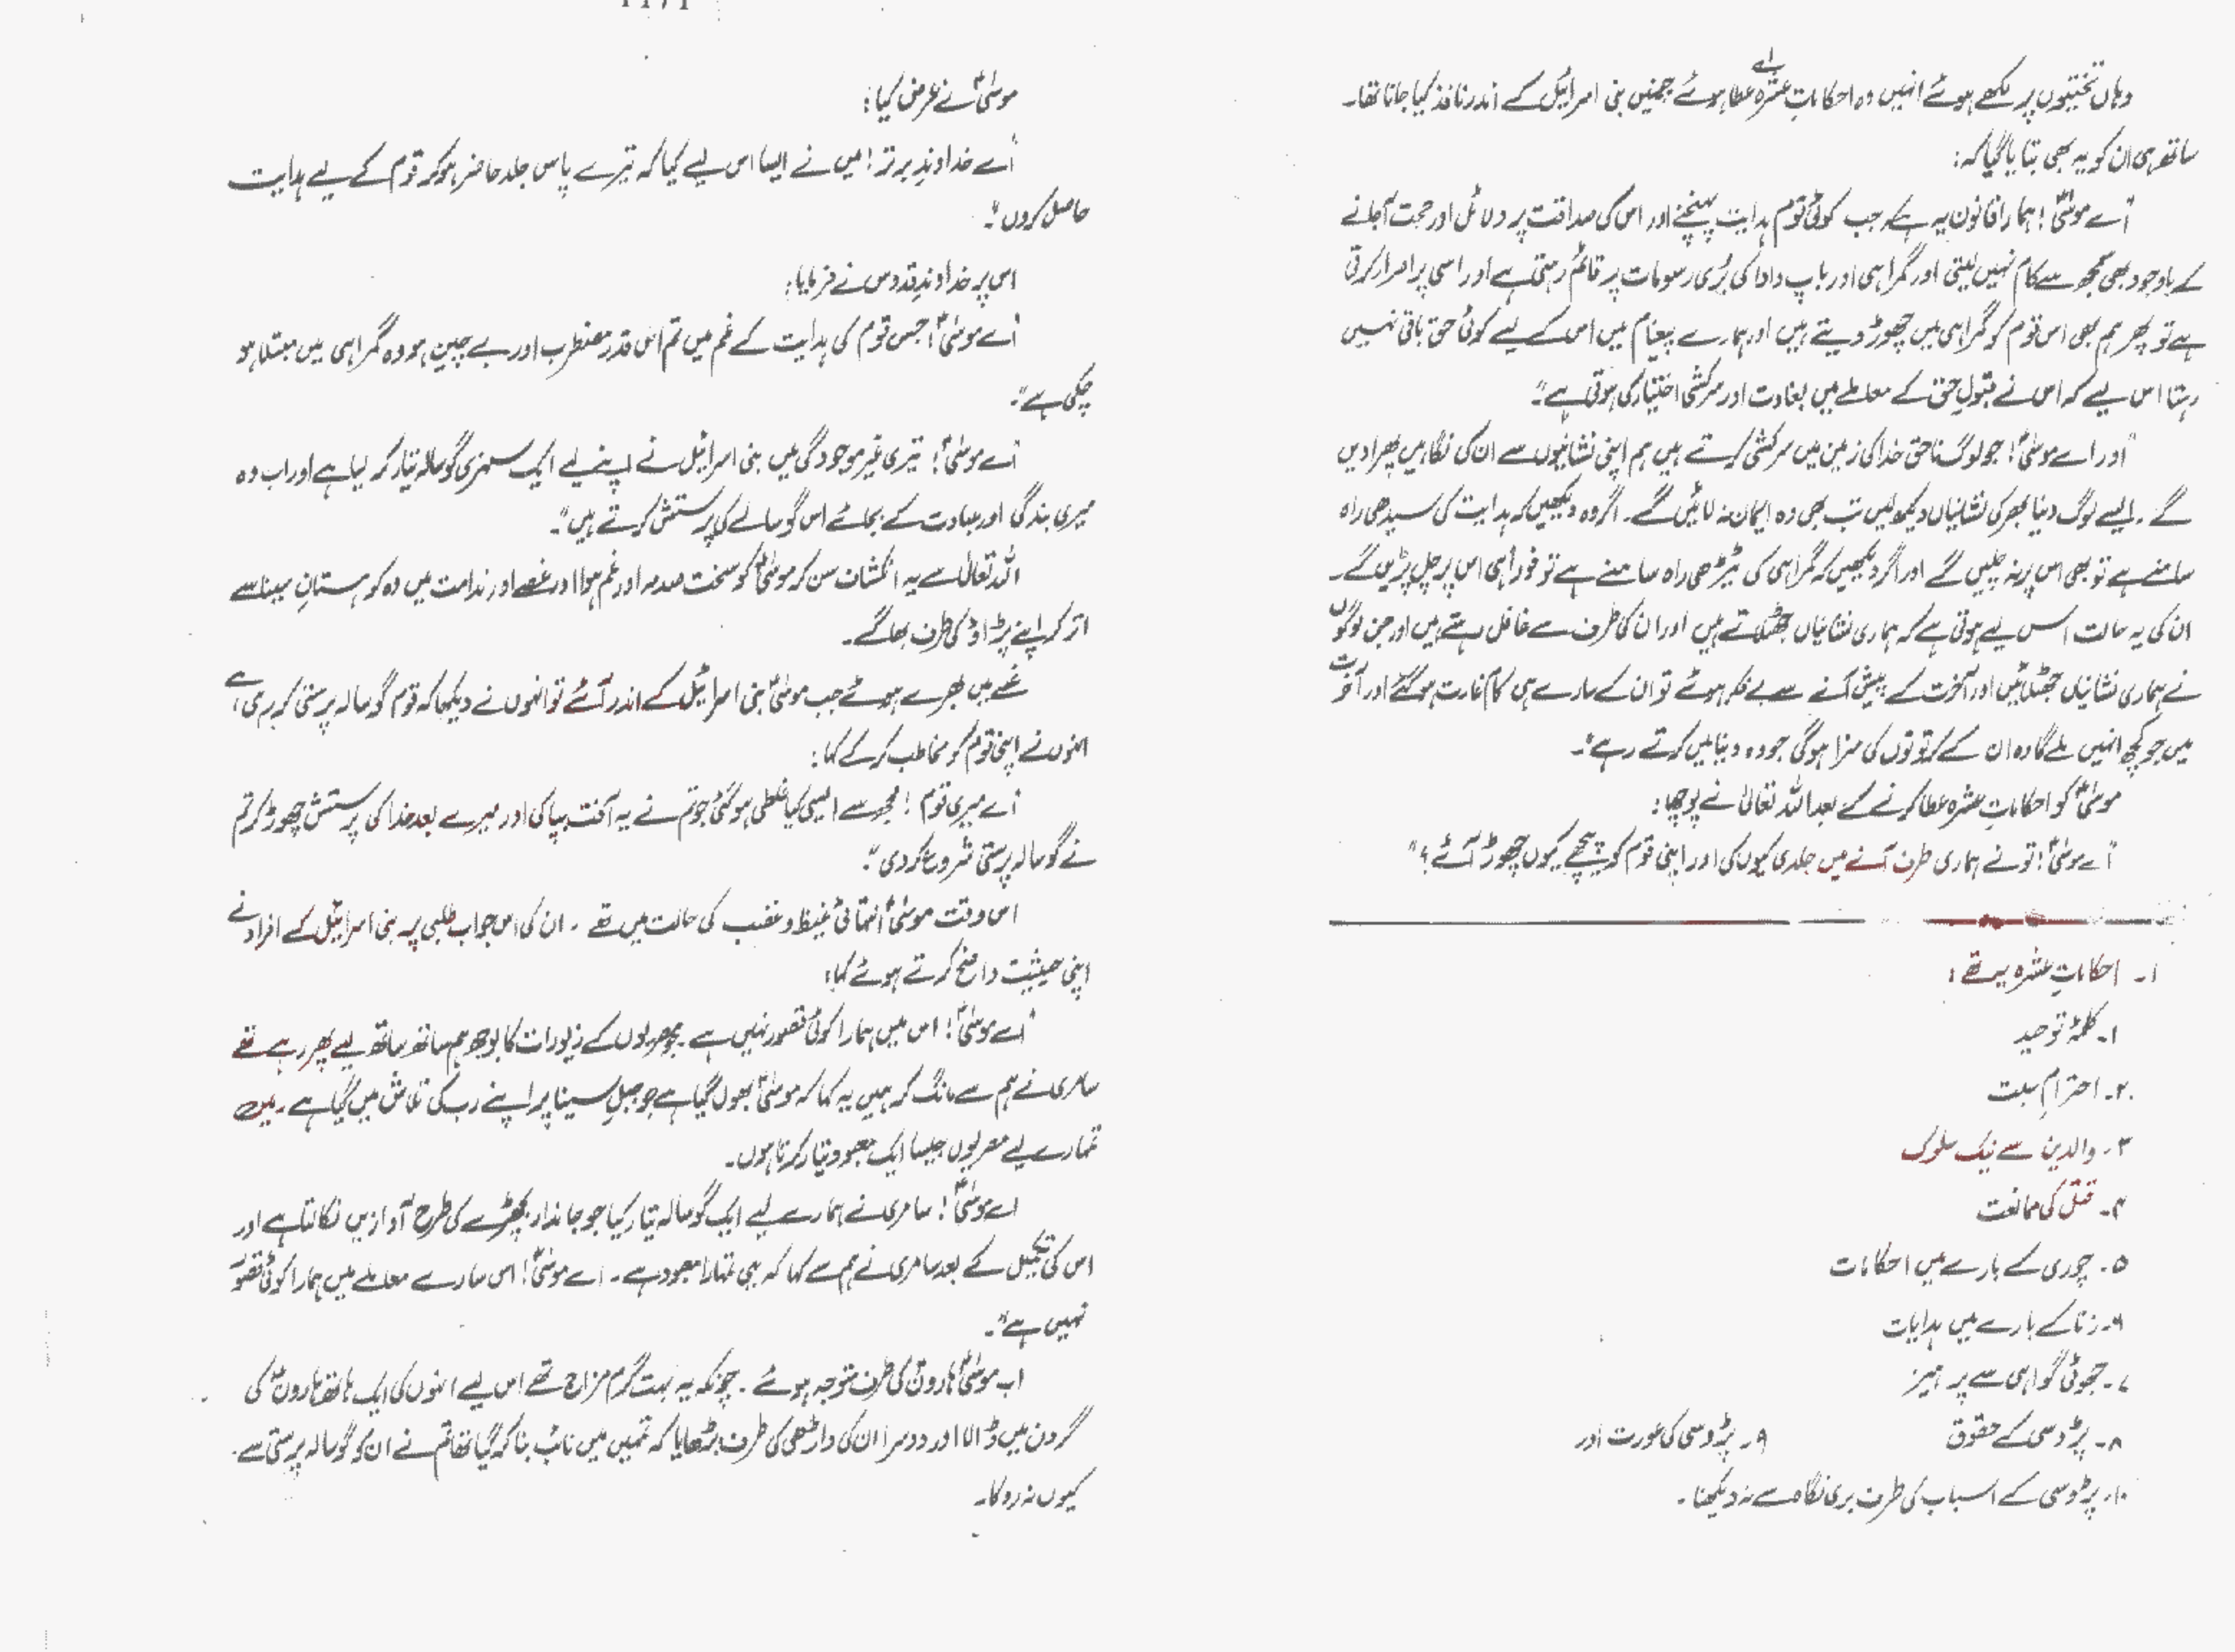 وہاں تختیوں پر لکھے ہوئے انہیں وہ احکاماتِ عشرہ عطا ہوئے جنہیں بنی اسرائیل کے اندر نافذ کیا جانا تھا۔
ساتھ ہی ان کو یہ بھی بتایا گیا کہ:
"اے موسیٰؑ! ہمارا قانون یہ ہے کہ جب کوئی قوم ہدایت پہنچنے اور اس کی صداقت پر دلائل اور حجت آجانے
کے باوجود بھی سمجھ سے کام نہیں لیتی اور گمراہی اور باپ دادا کی بُری رسومات پر قائم رہتی ہے اور اسی پر اصرار کرتی
ہے تو پھر ہم بھی اس قوم کو گمراہی میں چھوڑ دیتے ہیں اور ہمارے پیغام میں اس کے لیے کوئی حق باقی نہیں
رہتا اس لیے کہ اس نے قبولِ حق کے معاملے میں بغاوت اور سرکشی اختیار کی ہوتی ہے"۔
"اور اے موسیٰؑ! جو لوگ ناحق خدا کی زمین میں سرکشی کرتے ہیں ہم اپنی نشانیوں سے ان کی نگاہیں پھرا دیں
گے۔ ایسے لوگ دنیا بھر کی نشانیاں دیکھ لیں تب بھی وہ ایمان نہ لائیں گے۔ اگر وہ دیکھیں کہ ہدایت کی سیدھی راہ
سامنے ہے تو بھی اس پر نہ چلیں گے اور اگر دیکھیں کہ گمراہی کی ٹیڑھی راہ سامنے ہے تو فوراً ہی اس پر چل پڑیں گے۔
ان کی یہ حالت اس لیے ہوتی ہے کہ ہماری نشانیاں جھٹلاتے ہیں اور ان کی طرف سے غافل رہتے ہیں اور جن لوگوں
نے ہماری نشانیاں جھٹلائیں اور آخرت کے پیش آنے سے بے فکر ہوئے تو ان کے سارے ہی کام غارت ہو گئے اور آخرت
میں جو کچھ انہیں ملے گا وہ ان کے کرتوتوں کی سزا ہوگی جو وہ دنیا میں کرتے رہے"۔
موسیٰؑ کو احکاماتِ عشرہ عطا کرنے کے بعد اللہ تعالیٰ نے پوچھا:
"اے موسیٰؑ! تو نے ہماری طرف آنے میں جلدی کیوں کی اور اپنی قوم کو پیچھے کیوں چھوڑ آئے؟"
۱۔ احکاماتِ عشرہ یہ تھے:
۱۔ کلمۂ توحید
۲۔ احترامِ سبت
۳۔ والدین سے نیک سلوک
۴۔ قتل کی ممانعت
۵۔ چوری کے بارے میں احکامات
۶۔ زنا کے بارے میں ہدایات
۷۔ جھوٹی گواہی سے پرہیز
۸۔ پڑوسی کے حقوق ۹۔ پڑوسی کی عورت اور
۱۰۔ پڑوسی کے اسباب کی طرف بری نگاہ سے نہ دیکھنا۔
موسیٰؑ نے عرض کیا:
"اے خداوندِ برتر! میں نے ایسا اس لیے کیا کہ تیرے پاس جلد حاضر ہو کر قوم کے لیے ہدایت
حاصل کروں"۔
اس پر خداوندِ قدوس نے فرمایا:
"اے موسیٰؑ! جس قوم کی ہدایت کے غم میں تم اس قدر مضطرب اور بے چین ہو وہ گمراہی میں مبتلا ہو
چکی ہے"۔
"اے موسیٰؑ! تیری غیر موجودگی میں بنی اسرائیل نے اپنے لیے ایک سنہری گوسالہ تیار کر لیا ہے اور اب وہ
میری بندگی اور عبادت کے بجائے اس گوسالے کی پرستش کرتے ہیں"۔
اللہ تعالیٰ سے یہ انکشاف سن کر موسیٰؑ کو سخت صدمہ اور غم ہوا اور غصے اور ندامت میں وہ کوہستانِ سینا سے
اتر کر اپنے پڑاؤ کی طرف بھاگے۔
غصے میں بھرے ہوئے جب موسیٰؑ بنی اسرائیل کے اندر آئے تو انھوں نے دیکھا کہ قوم گوسالہ پرستی کر رہی ہے
انہوں نے اپنی قوم کو مخاطب کر کے کہا:
"اے میری قوم! مجھ سے ایسی کیا غلطی ہو گئی جو تم نے یہ آفت بپا کی اور میرے بعد خدا کی پرستش چھوڑ کر تم
نے گوسالہ پرستی شروع کر دی"۔
اس وقت موسیٰؑ انتہائی غیظ و غضب کی حالت میں تھے۔ ان کی اس جواب طلبی پر بنی اسرائیل کے افراد نے
اپنی حیثیت واضح کرتے ہوئے کہا:
"اے موسیٰؑ! اس میں ہمارا کوئی قصور نہیں ہے۔ مصریوں کے زیورات کا بوجھ ہم ساتھ ساتھ لیے پھر رہے تھے
سامری نے ہم سے مانگ کر ہمیں یہ کہا کہ موسیٰؑ بھول گیا ہے جو جبلِ سینا پر اپنے رب کی تلاش میں گیا ہے۔ میں
تمہارے لیے مصریوں جیسا ایک معبود تیار کرتا ہوں۔
اے موسیٰؑ! سامری نے ہمارے لیے ایک گوسالہ تیار کیا جو جاندار بچھڑے کی طرح آوازیں نکالتا ہے اور
اس کی تکمیل کے بعد سامری نے ہم سے کہا کہ یہی تمہارا معبود ہے۔ اے موسیٰؑ! اس سارے معاملے میں ہمارا کوئی قصور
نہیں ہے"۔
اب موسیٰؑ ہارونؑ کی طرف متوجہ ہوئے۔ چونکہ یہ بہت گرم مزاج تھے اس لیے انہوں کی ایک ہاتھ ہارونؑ کی
گردن میں ڈالا اور دوسرا ان کی داڑھی کی طرف بڑھایا کہ تمہیں میں نائب بنا کر گیا تھا تم نے ان کو گوسالہ پرستی سے
کیوں نہ روکا۔